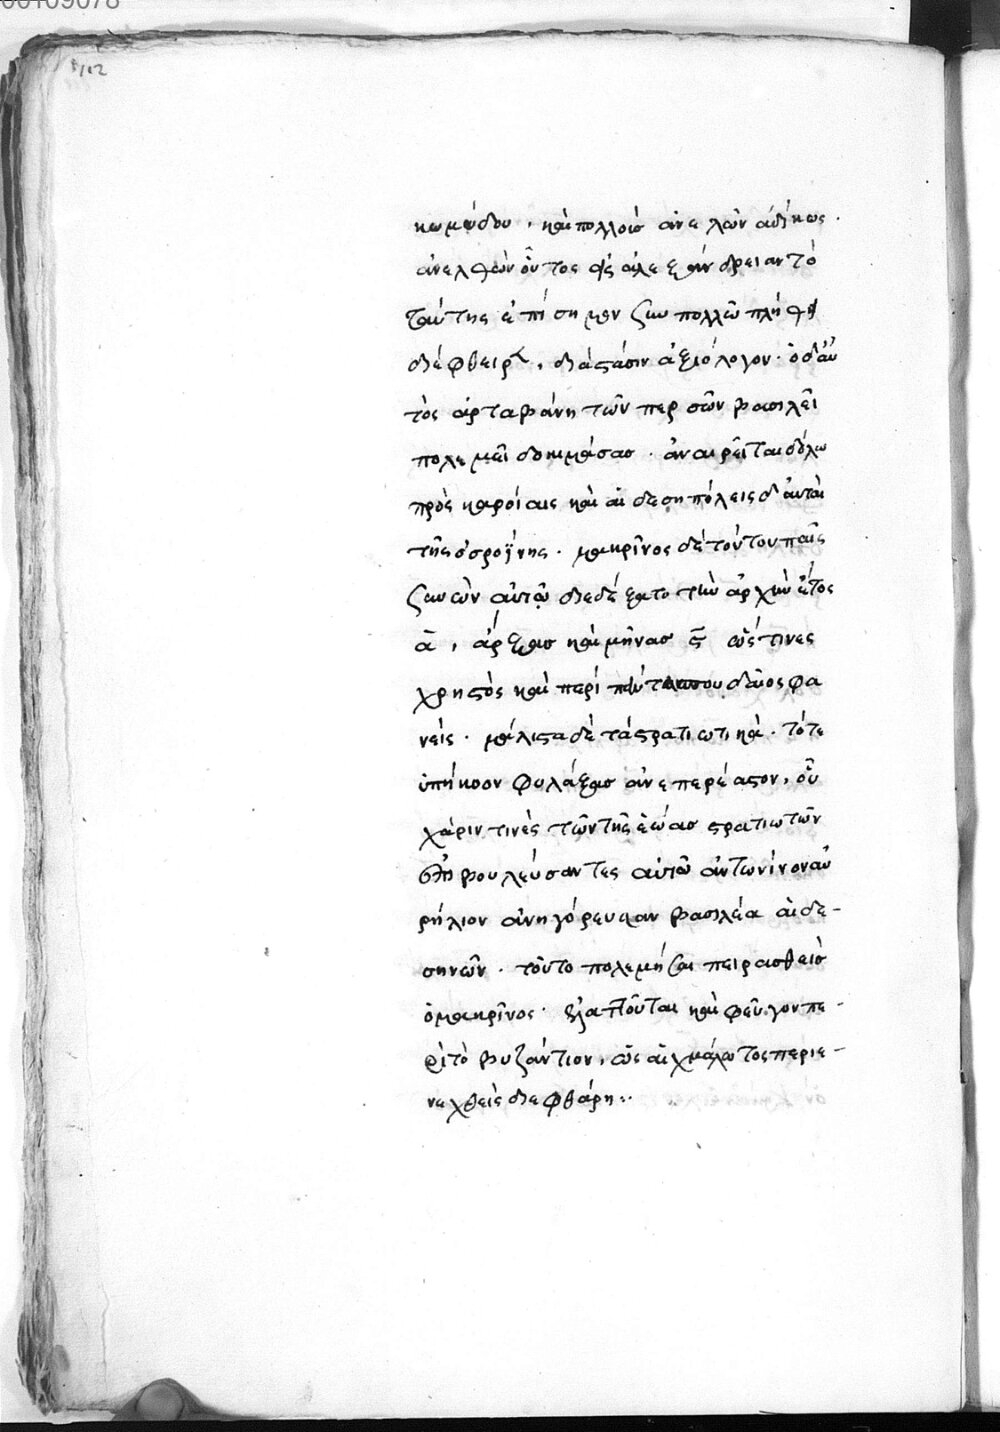 00109078
κωμώδου, καὶ πολλοὺς ἀνελὼν ἀδίκως.
ἀνελθὼν οὗτος εἰς ἀλεξάνδρειαν τὸ
ταύτης ἐπίσημον ζὺν πολλῶ πλήθει
διέφθειρε, διὰ στάσιν ἀξιόλογον. ὁ δ' αὐ
τὸς ἀρταβάνη τῶν περσῶν βασιλεῖ
πολεμεῖ δοκιμάσας. ἀναιρεῖται δόλω
πρὸς καροίαις καὶ αἰδεσηπόλεις δ αὗται
τῆς ὀσροϊνης. μακρῖνος δὲ τούτου παῖς
ζυνὼν αὐτῶ διεδέξατο τὴν ἀρχὴν ἔτος
ᾱ, ἄρξας καὶ μῆνας ϛ̄ ὥς τινες
χρηστὸς καὶ περὶ που δέιος φα
νείς. μάλιστα δὲ τὰ στρατιωτικὰ. τό τε
ὑπήκοον φυλάξας ἀνεπερέαστον, οὗ
χάριν τινὲς τῶν τῆς ἑώας στρατιωτῶν
ἐπιβουλεύσαντες αὐτῶ ἀντωνίνον αὐ
ρήλιον ἀνηγόρευσαν βασιλέα αἰδε-
σηνῶν. τοῦτο πολεμήσαι πειρασθεὶς
ὁ μακρῖνος. ἐλαττοῦται καὶ φεῦγον πε-
ρὶ τὸ βυζάντιον, ὡς αἰχμάλωτος περιε-
νεχθεὶς διεφθάρη:.